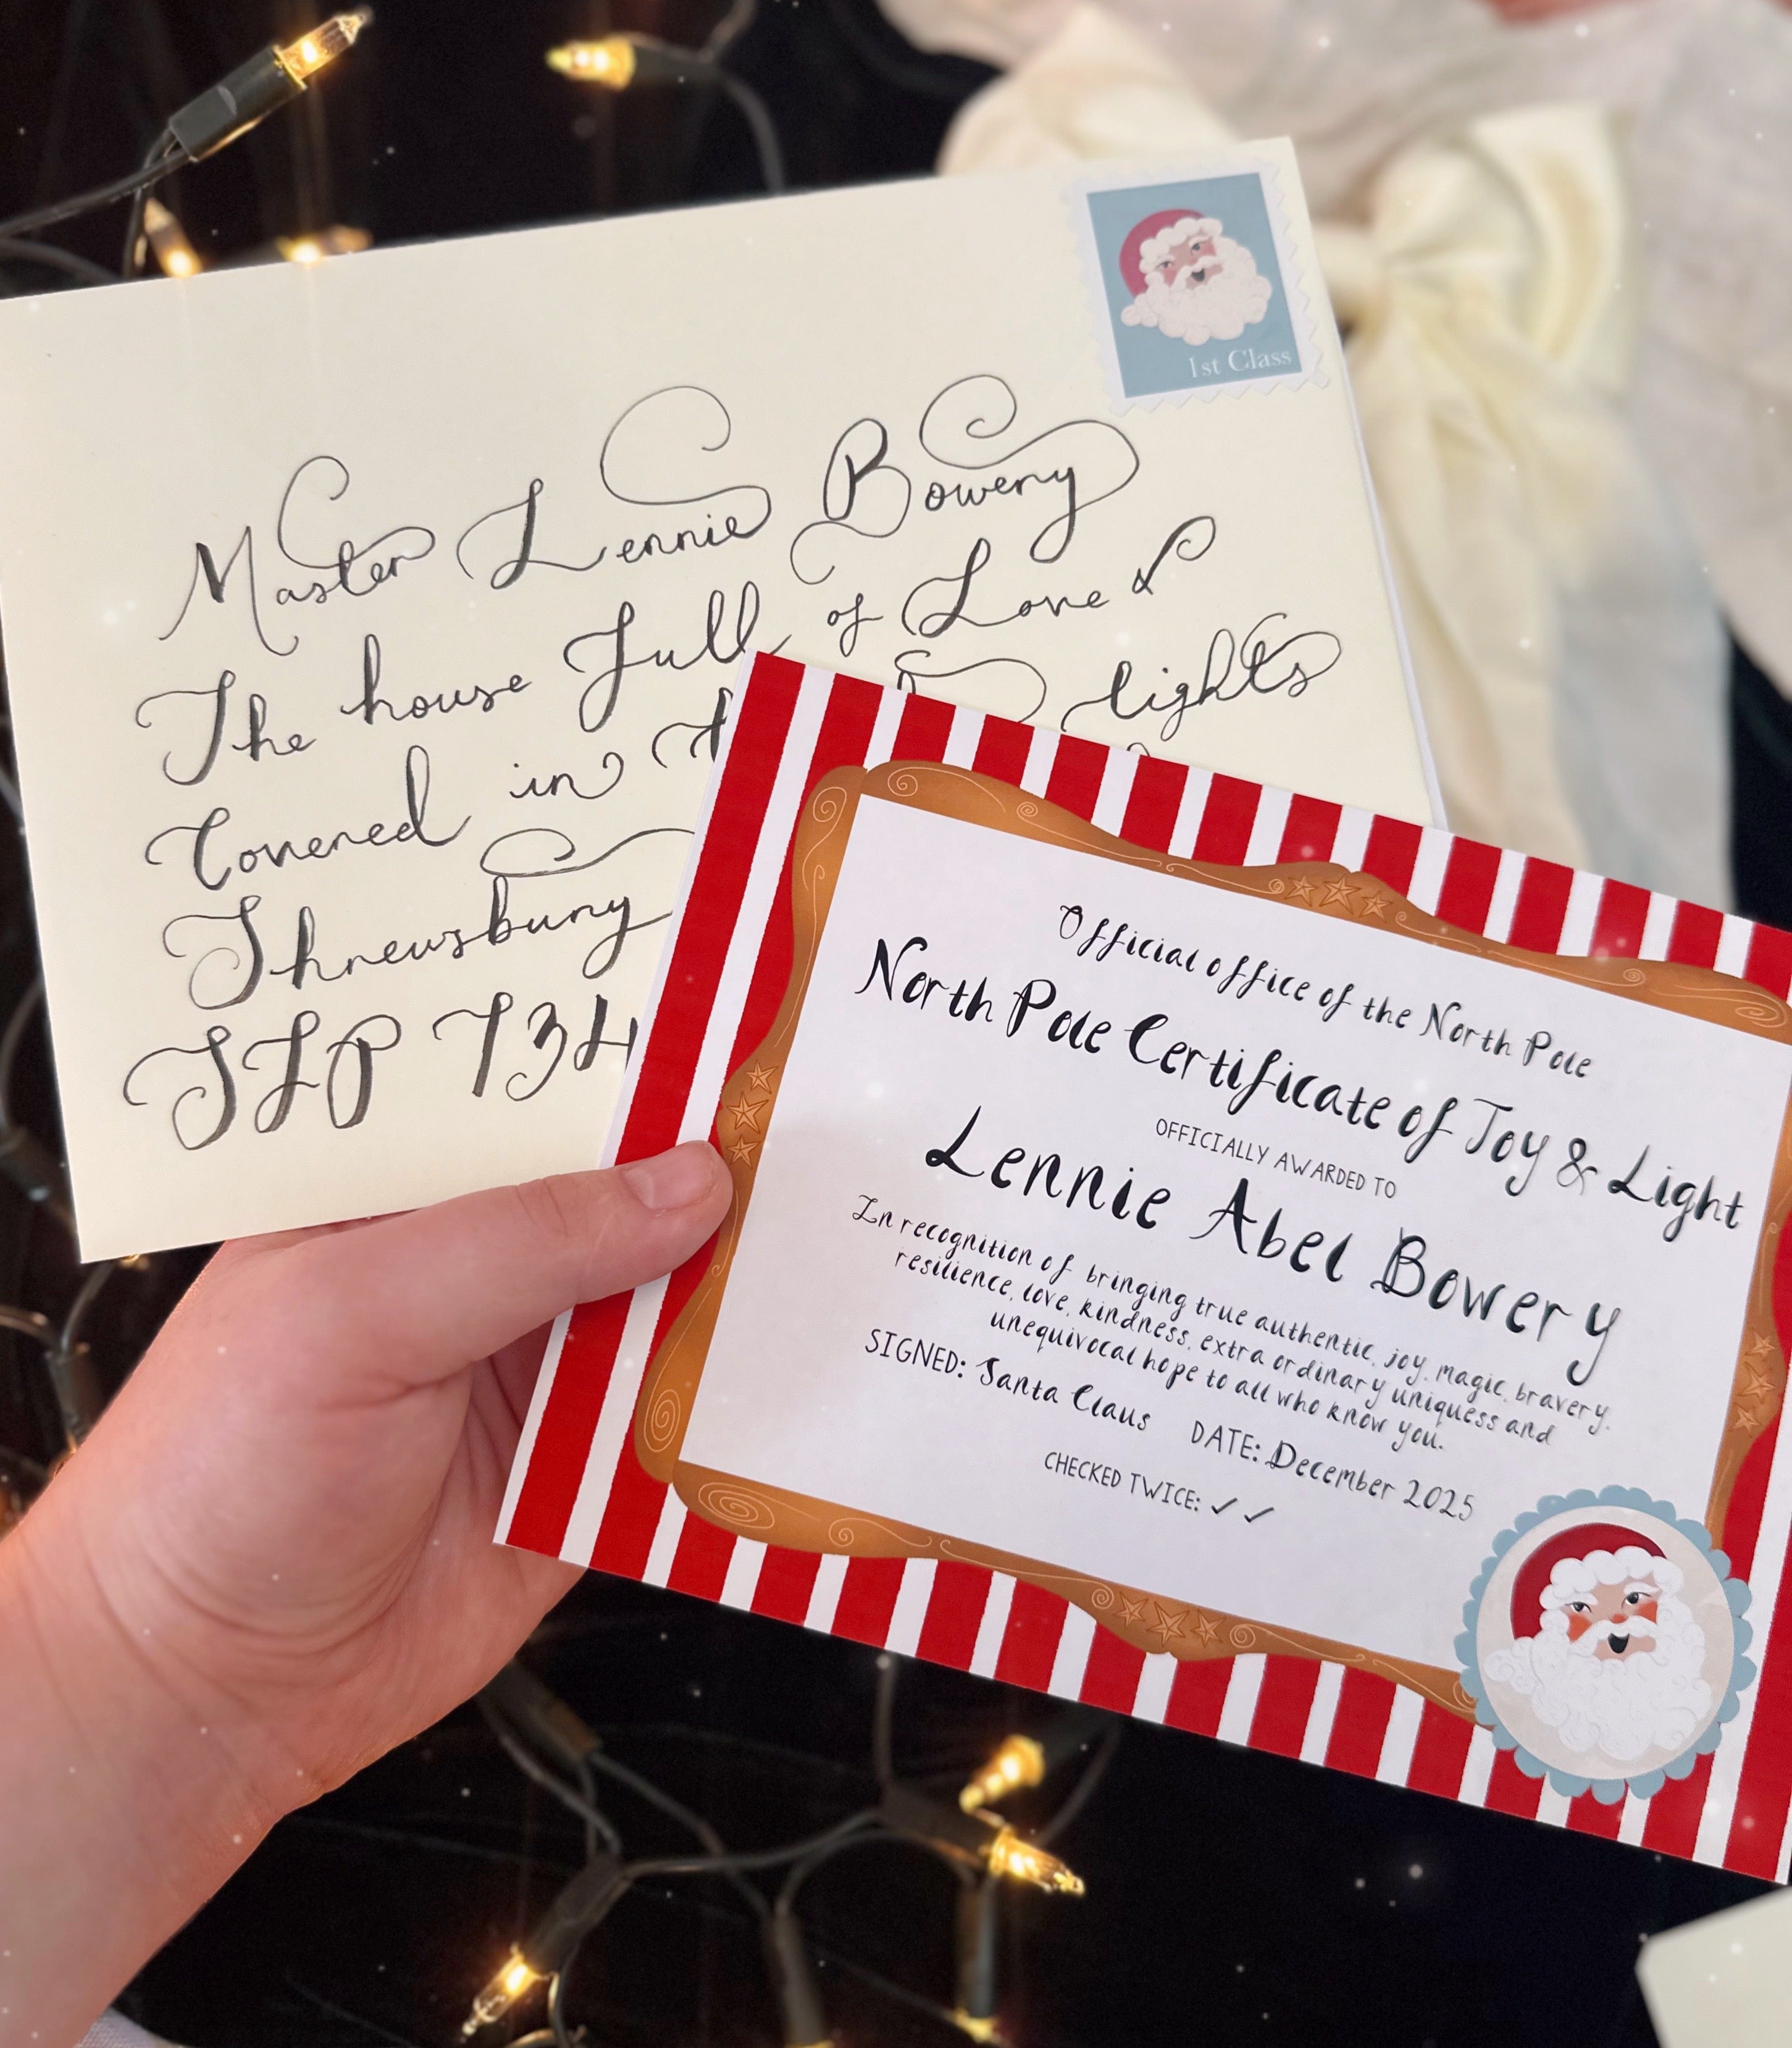 1st Class
Master Lennie Bowery
The house full of Love &
Covered in lights
Shrewsbury
SLP 734
Official office of the North Pole
North Pole Certificate of Joy & Light
OFFICIALLY AWARDED TO
Lennie Abel Bowery
In recognition of bringing true authentic, joy, magic, bravery,
resilience, love, kindness, extra ordinary uniquess and
unequivocal hope to all who know you.
SIGNED: Santa Claus DATE: December 2025
CHECKED TWICE: ✓ ✓